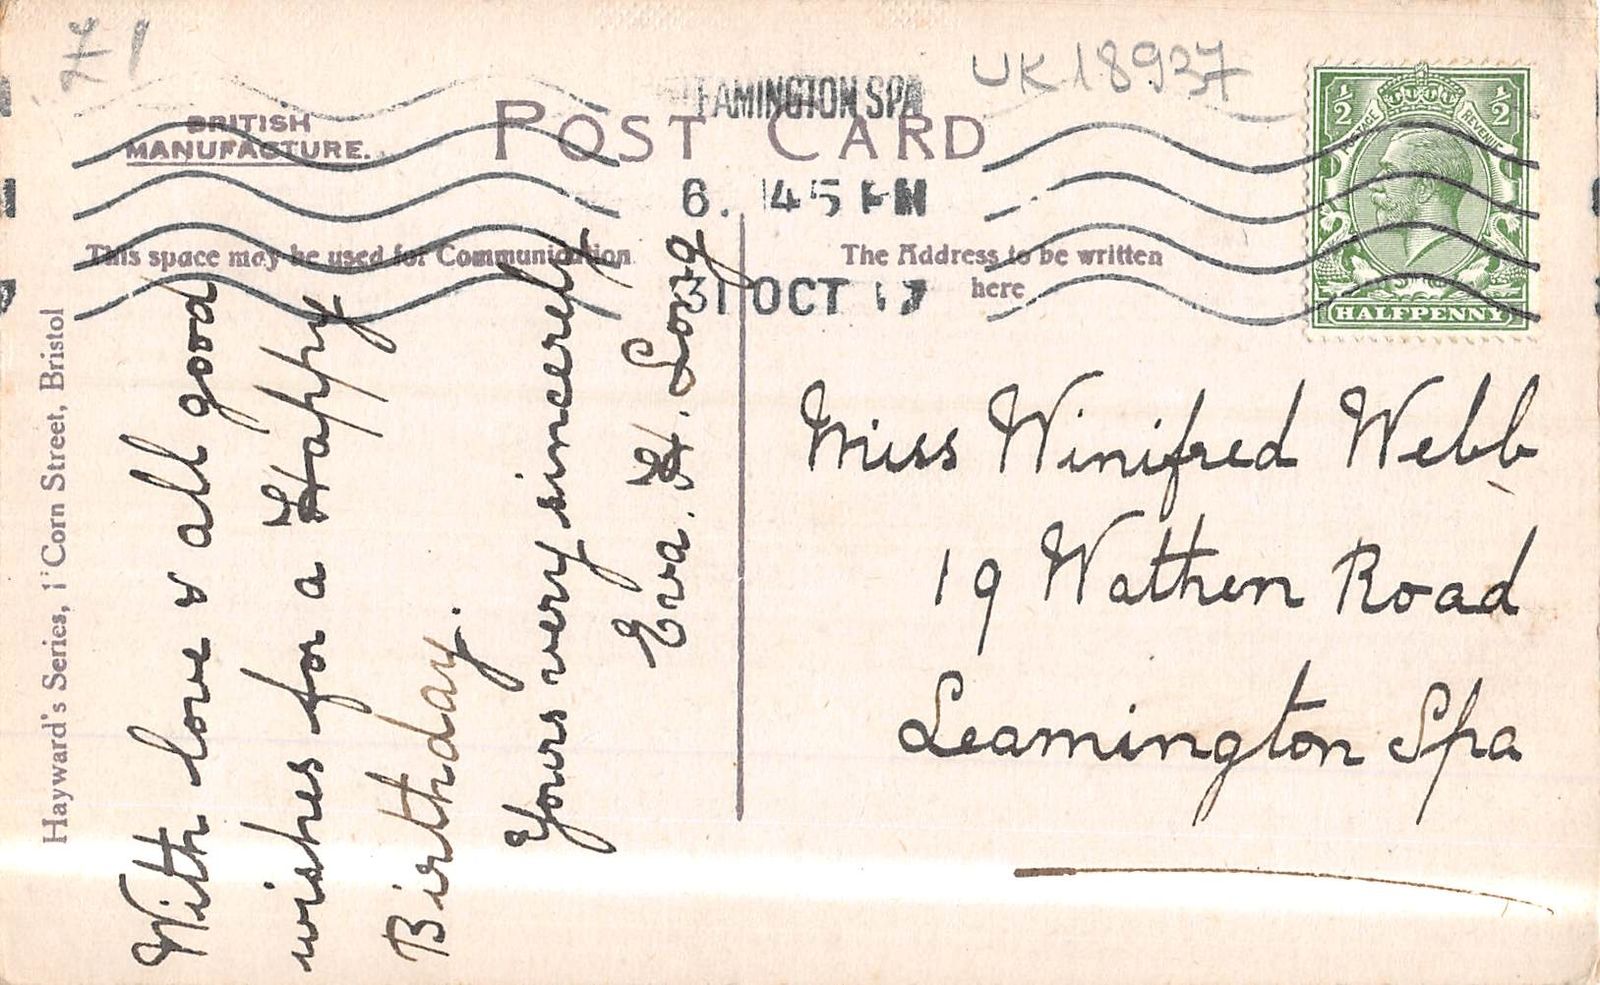 71
UK18937
LEAMINGTON SPA
6. 45 PM
31 OCT 17
POST CARD
BRITISH
MANUFACTURE.
This space may be used for Communication
The Address to be written
here
½ ½
POSTAGE REVENUE
HALFPENNY
Hayward's Series, 1 Corn Street, Bristol
With love & all good
wishes for a Happy
Birthday.
Yours very sincerely
Eva. H. Long
Miss Winifred Webb
19 Wathen Road
Leamington Spa